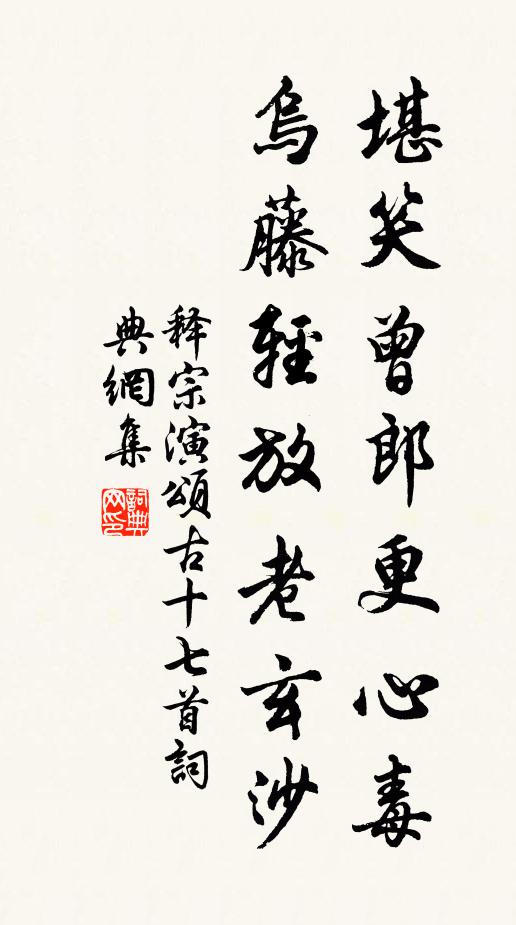 堪笑曾郎更心毒
烏藤輕放老玄沙
释宗演頌古十七首詞
典網集
詞典
网印